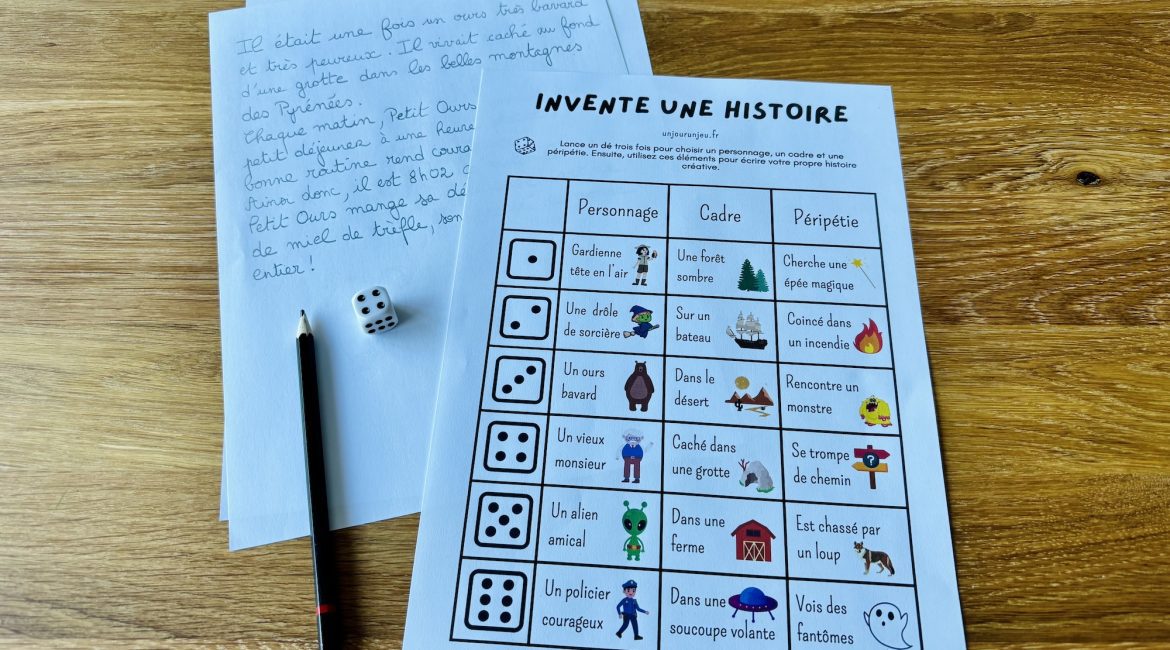 Il était une fois un ours très bavard
et très peureux. Il vivait caché au fond
d'une grotte dans les belles montagnes
des Pyrénées.
Chaque matin, Petit Ours
petit déjeuner à une heure
bonne routine rend
donc, il est 8h02
Petit Ours mange sa
de miel de trèfle, son
entier !
INVENTE UNE HISTOIRE
unjourunjeu.fr
Lance un dé trois fois pour choisir un personnage, un cadre et une
péripétie. Ensuite, utilisez ces éléments pour écrire votre propre histoire
créative.
Personnage Cadre Péripétie
Gardienne
tête en l'air
Une forêt
sombre
Cherche une
épée magique
Une drôle
de sorcière
Sur un
bateau
Coincé dans
un incendie
Un ours
bavard
Dans le
désert
Rencontre un
monstre
Un vieux
monsieur
Caché dans
une grotte
Se trompe
de chemin
?
Un alien
amical
Dans une
ferme
Est chassé par
un loup
Un policier
courageux
Dans une
soucoupe volante
Vois des
fantômes